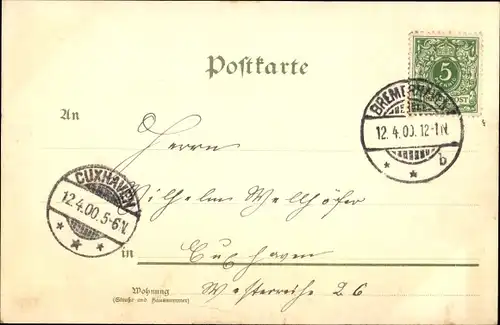 Postkarte
5
POST
BREMERHAVEN
12.4.00.12-1N.
b
An
Herrn
CUXHAVEN
12.4.00.5-6N.
Wilhelm Wellhöfer
in
Cuxhaven
Wohnung
(Straße und Hausnummer)
Westerreihe 26